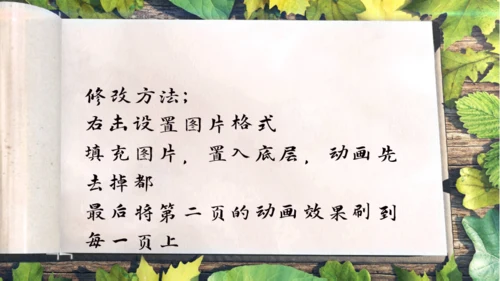 修改方法；
右击设置图片格式
填充图片，置入底层，动画先
去掉都
最后将第二页的动画效果刷到
每一页上